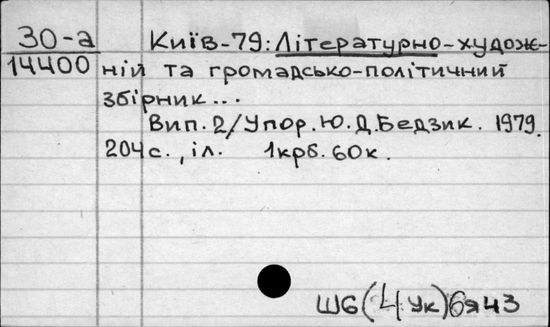 30-а Київ-79: Літературно-худож-
14400 ній та громадсько-політичний
збірник...
Вип. 2/Упор. Ю. Д. Бедзик. 1979.
204 с., іл. 1крб. 60к.
Ш6(4Ук)6я43